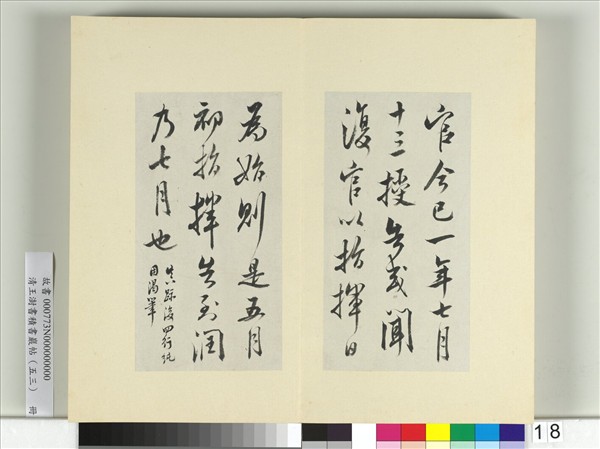 官今已一年七月
十三授告或聞
復官以指揮日
為始則是五月
初指揮告到潤
乃七月也
跡後四行純
用渴筆
故書 000773N000000000
清王澍書積書巖帖（五三） 冊
18